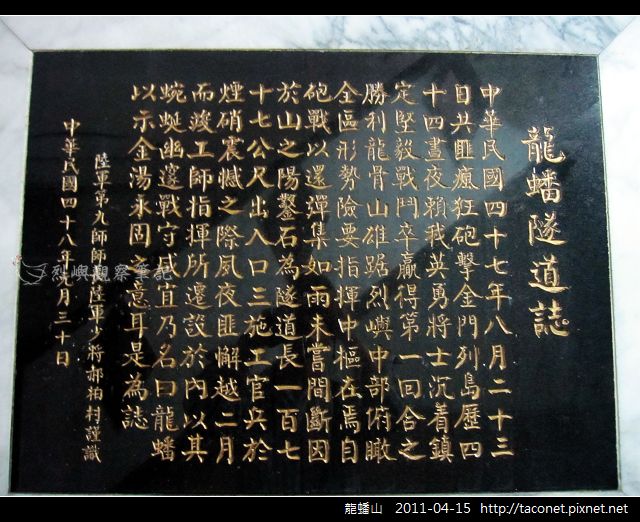 龍蟠隧道誌
中華民國四十七年八月二十三
日共匪瘋狂砲擊金門列島歷四
十四晝夜賴我英勇將士沉着鎮
定堅毅戰鬥卒贏得第一回合之
勝利龍骨山雄踞烈嶼中部俯瞰
全區形勢險要指揮中樞在焉自
砲戰以還彈集如雨未嘗間斷因
於山之陽鑿石為隧道長一百七
十七公尺出入口三施工官兵於
煙硝震憾之際夙夜匪懈越二月
而竣工師指揮所遷設於內以其
蜿蜒幽邃戰守咸宜乃名曰龍蟠
以示金湯永固之意耳是為誌
陸軍第九師師長陸軍少將郝柏村謹識
中華民國四十八年九月三十日
烈嶼觀察筆記
龍蟠山 2011-04-15 http://taconet.pixnet.net